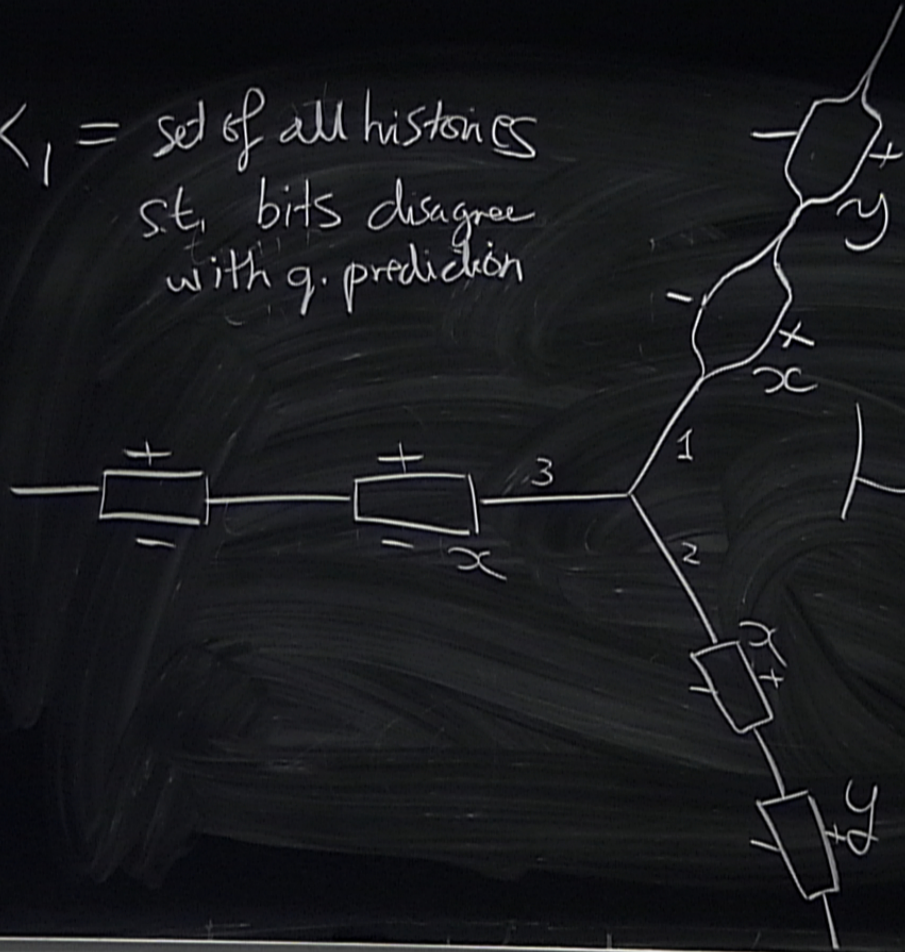 K₁ = set of all histories
s.t. bits disagree
with q. prediction
- +
y
- +
x
1
+ + 3
- - x
2
x
- +
y
- +